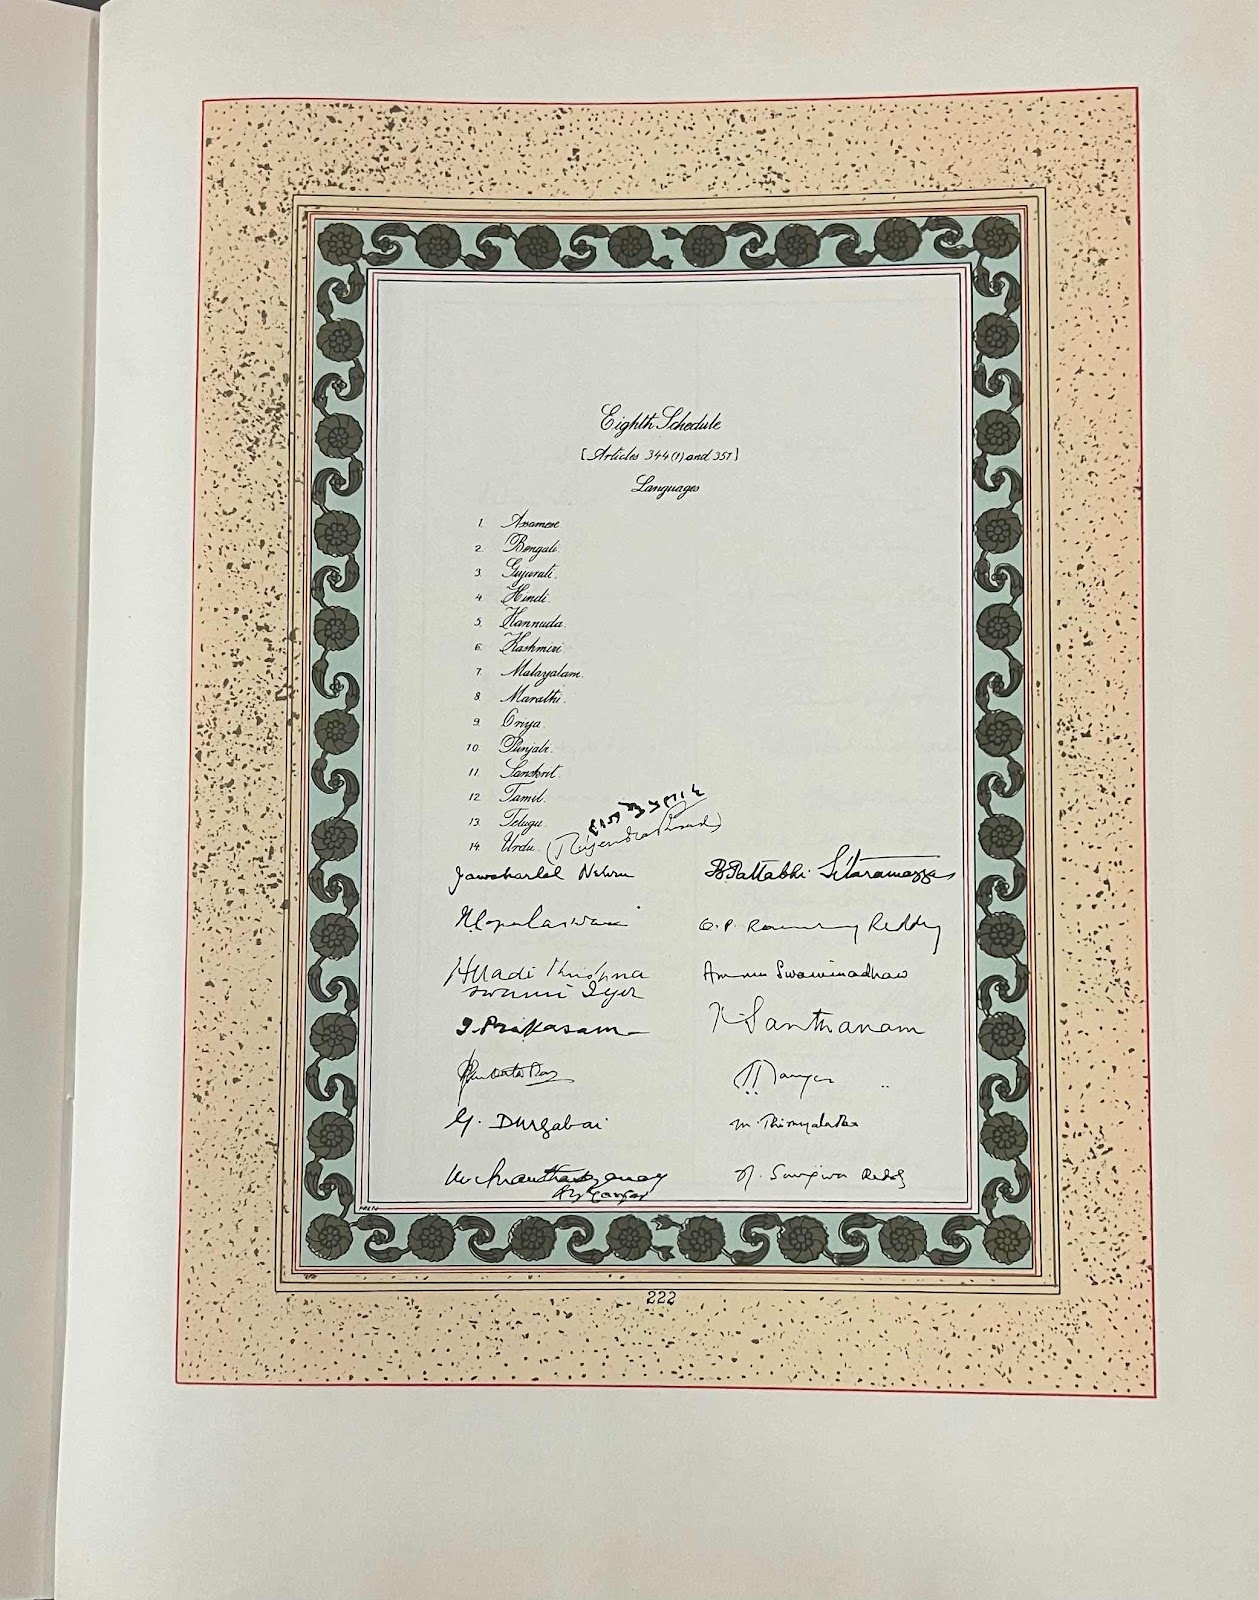 Eighth Schedule
[Articles 344(1) and 351]
Languages
1. Assamese.
2. Bengali.
3. Gujarati.
4. Hindi.
5. Kannada.
6. Kashmiri.
7. Malayalam.
8. Marathi.
9. Oriya.
10. Punjabi.
11. Sanskrit.
12. Tamil.
13. Telugu.
14. Urdu.
(Rajendra Prasad)
Jawaharlal Nehru
B. Pattabhi Sitaramayya
Reddy
Ammu Swaminadhan
swami Iyer
T. Prakasam
K. Santhanam
G. Durgabai
N. Sanjiva Reddy
222